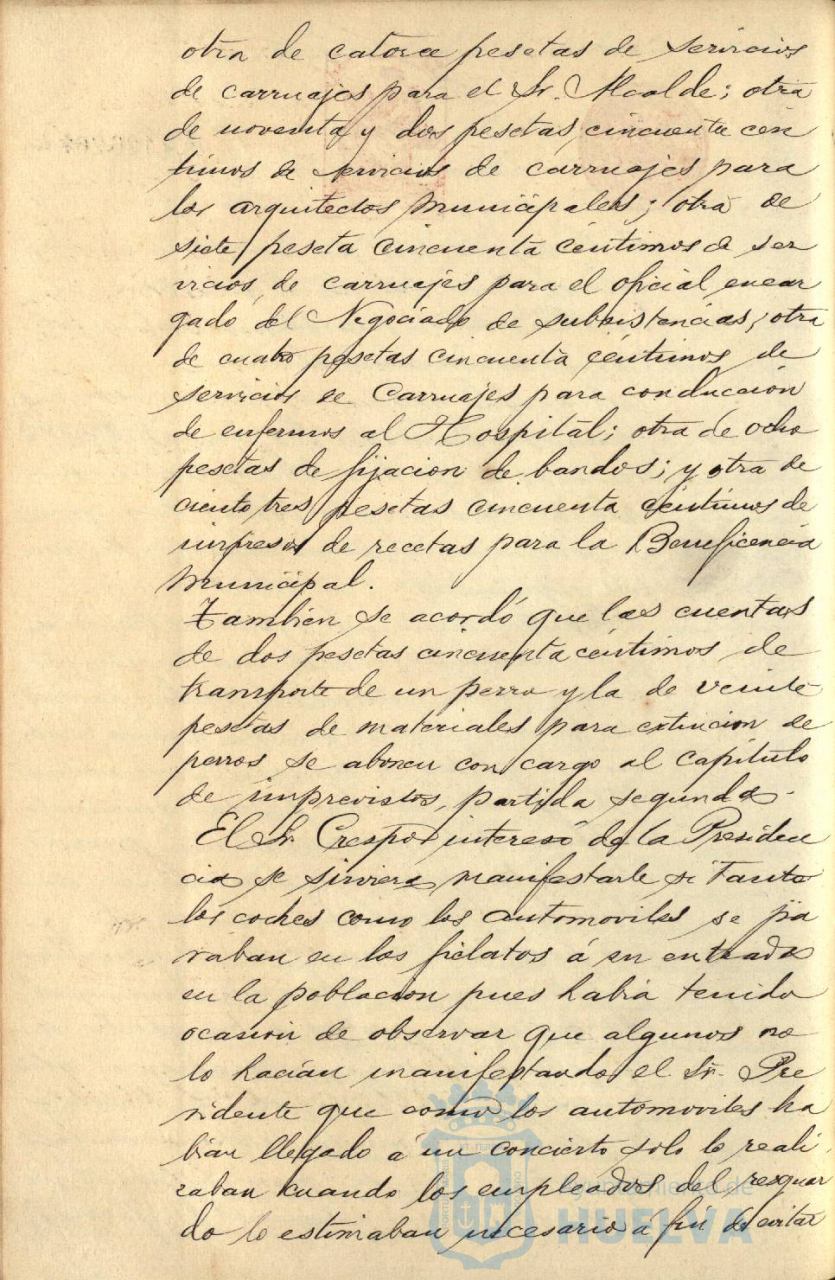 otra de catorce pesetas de servicios
de carruajes para el Sr. Alcalde; otra
de noventa y dos pesetas cincuenta cen
timos de servicios de carruajes para
los arquitectos municipales; otra de
siete peseta cincuenta céntimos de ser
vicios de carruajes para el oficial encar
gado del Negociado de subsistencias; otra
de cuatro pesetas cincuenta céntimos de
servicios de carruajes para conduccion
de enfermos al Hospital; otra de ocho
pesetas de fijacion de bandos; y otra de
ciento tres pesetas cincuenta céntimos de
impresos de recetas para la Beneficencia
Municipal.
Tambien se acordó que las cuentas
de dos pesetas cincuenta céntimos de
transporte de un perro y la de veinte
pesetas de materiales para extincion de
perros se abonen con cargo al capitulo
de imprevistos, partida segunda.
El Sr. Crespo interesó de la Presiden
cia se sirviera manifestarle si tanto
los coches como los automoviles se pa
raban en los fielatos á su entrada
en la poblacion pues habia tenido
ocasion de observar que algunos no
lo hacian manifestando el Sr. Pre
sidente que como los automoviles ha
bian llegado á un concierto solo lo reali
zaban cuando los empleados del resguar
do lo estimaban necesario a fin de evitar
Ayuntamiento de
HUELVA